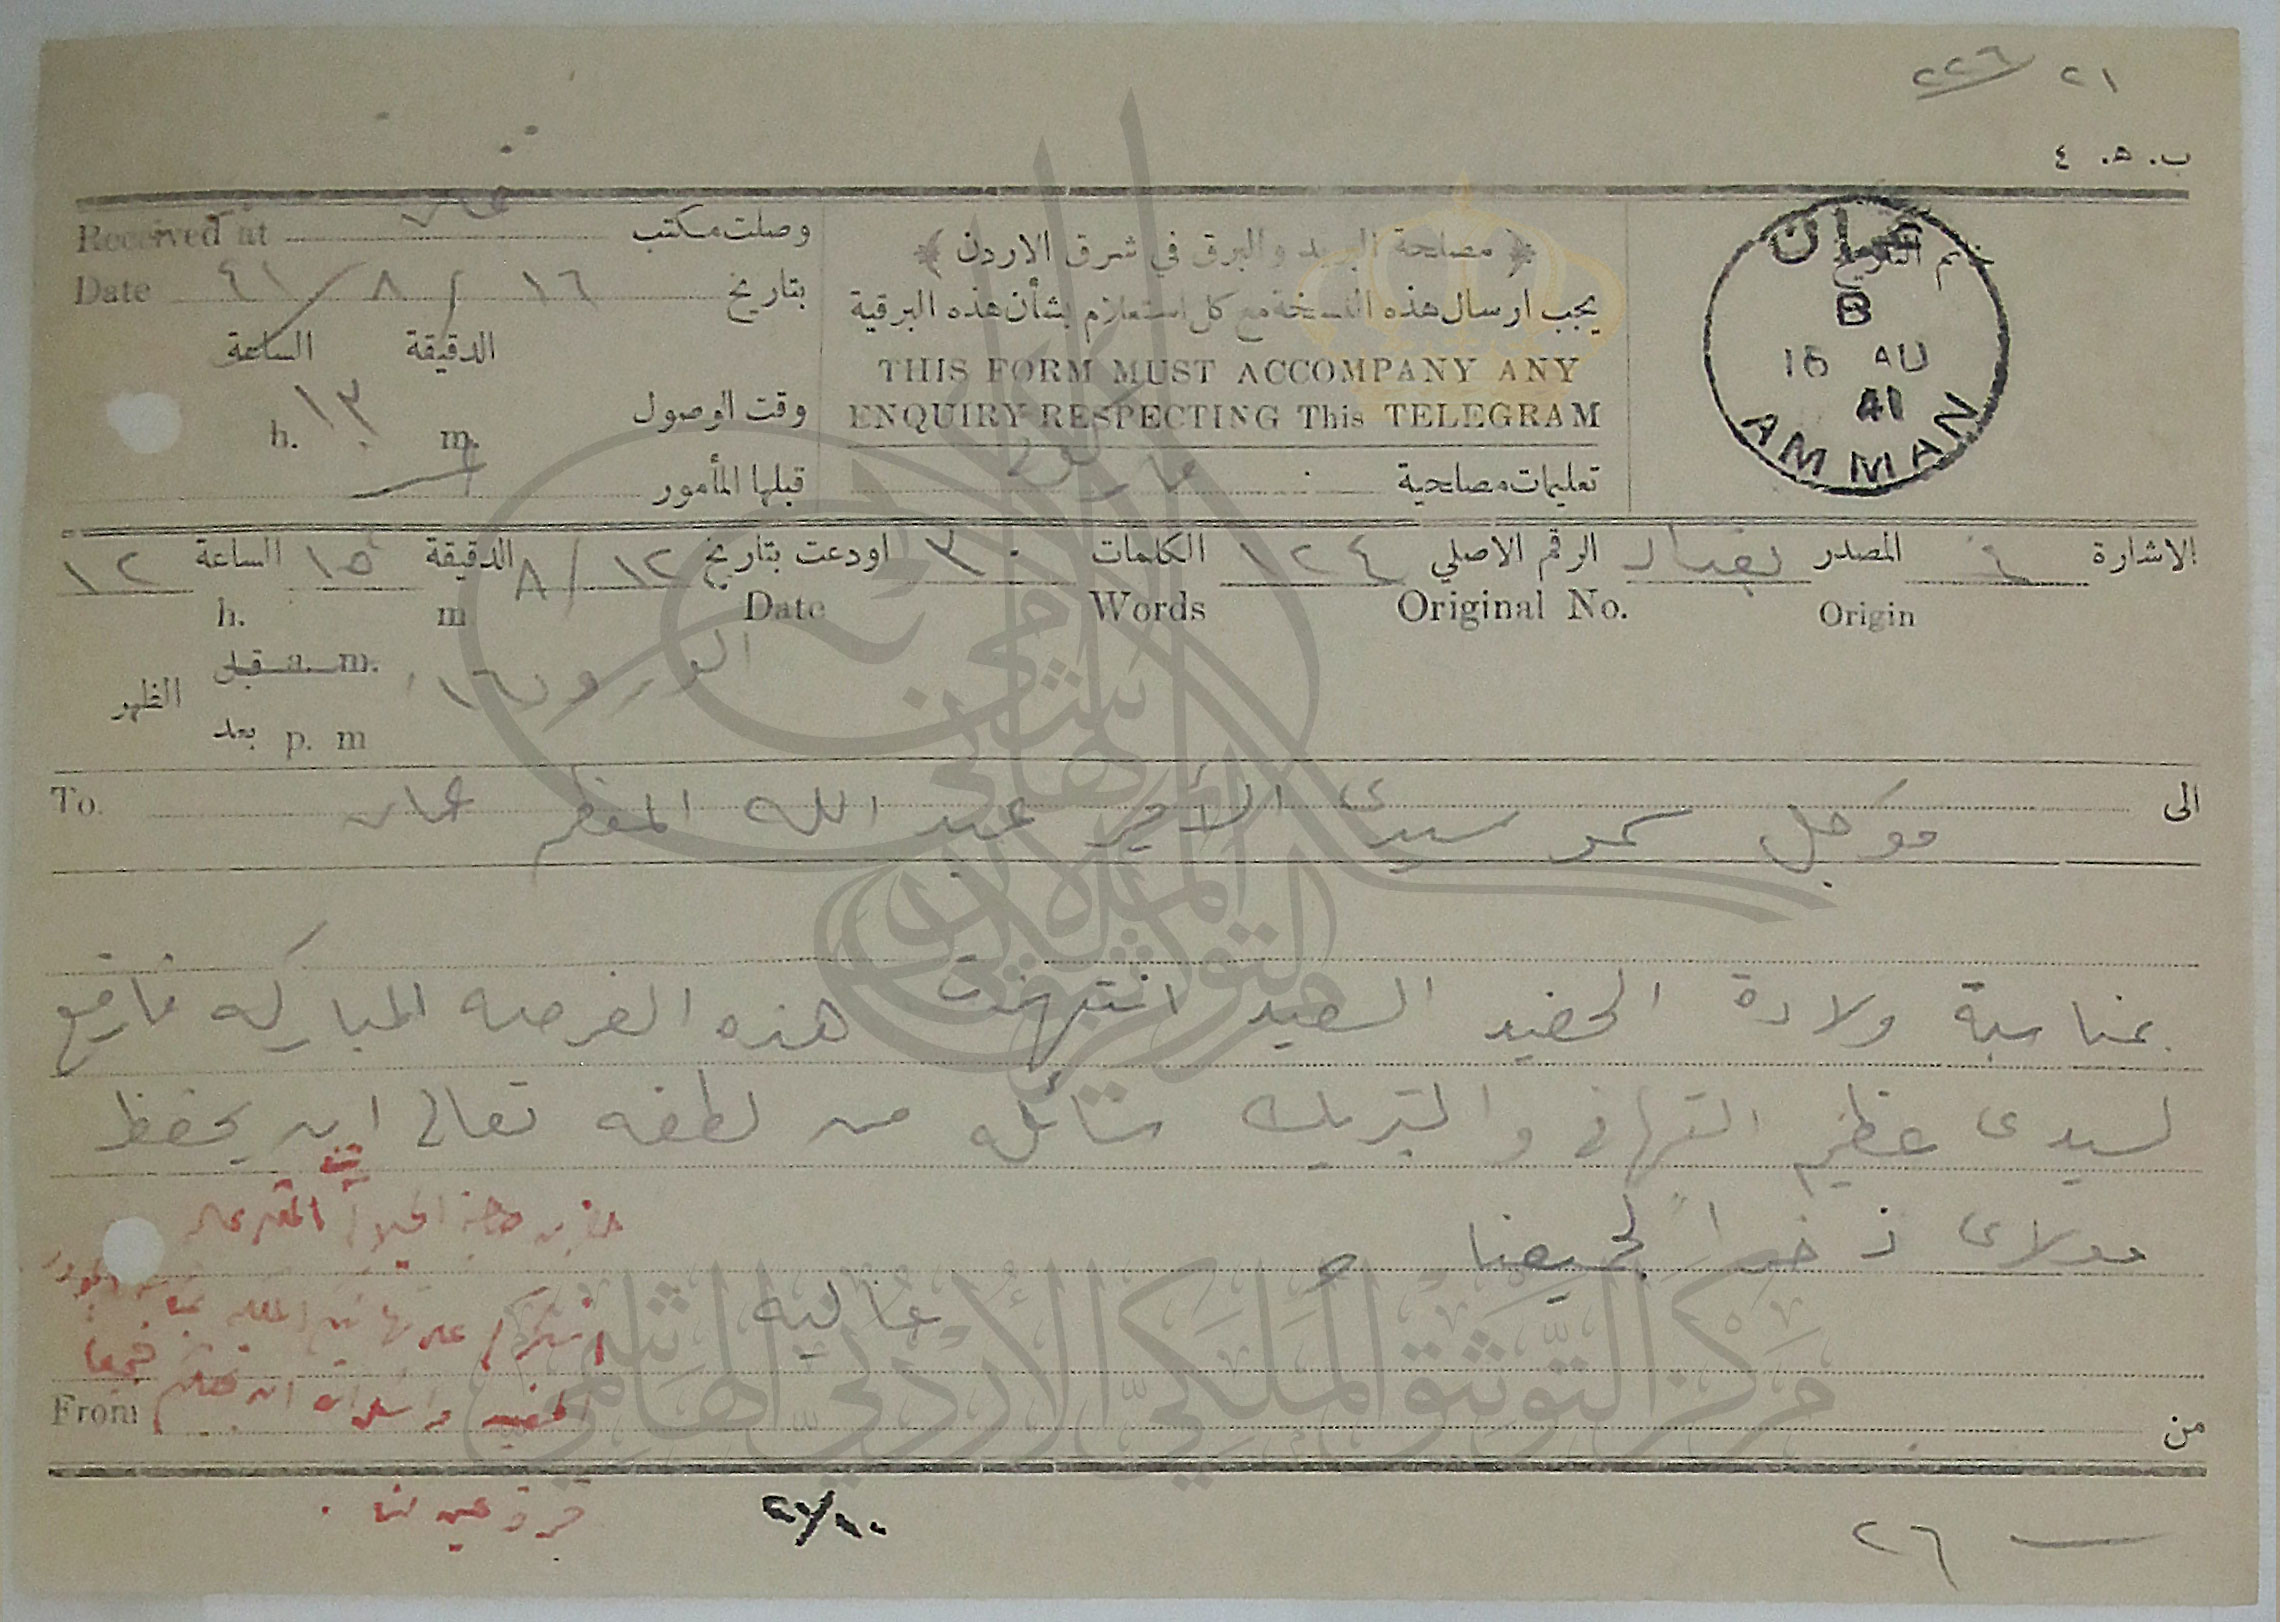 ٢١ ٢٢٦
ب. ه. ٤
Received at عمان وصلت مكتب
Date ١٦ / ٨ / ٤١ بتاريخ
الدقيقة الساعة
h. ١٣ m. وقت الوصول
قبلها المأمور
﴿ مصلحة البريد والبرق في شرق الاردن ﴾
يجب ارسال هذه النسخة مع كل استعلام بشأن هذه البرقية
THIS FORM MUST ACCOMPANY ANY
ENQUIRY RESPECTING This TELEGRAM
تعليمات مصلحية
ختم التاريخ
عمان
B
16 AU
41
AMMAN
الاشارة المصدر بغداد الرقم الاصلي ١٢٤ الكلمات ٣٠ اودعت بتاريخ ١٢ / ٨ الدقيقة ١٥ الساعة ١٢
Origin Original No. Words Date m h.
الورود ١٦
قبل a. m.
الظهر
بعد p. m
To. الى
مؤجل سمو سيدي الأمير عبد الله المعظم عمان
بمناسبة ولادة الحفيد السعيد انتهزت هذه الفرصه المباركه فارفع
لسيدى عظيم التهاني والتبريك سائله من لطفه تعالى ان يحفظ
مولاى ذخراً لجميعنا
عاليه
From من
قرة عين لنا .
٢٦
مركز التوثيق الملكي الأردني الهاشمي